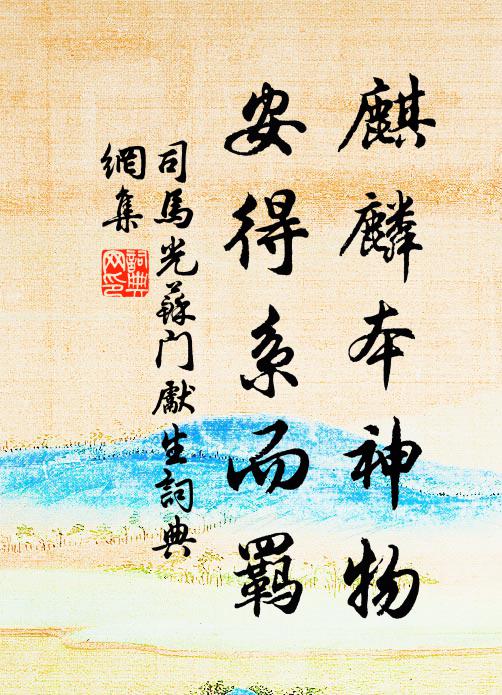 麒麟本神物
安得系而羈
司馬光蘇門獻生詞典
網集
詞典
网印